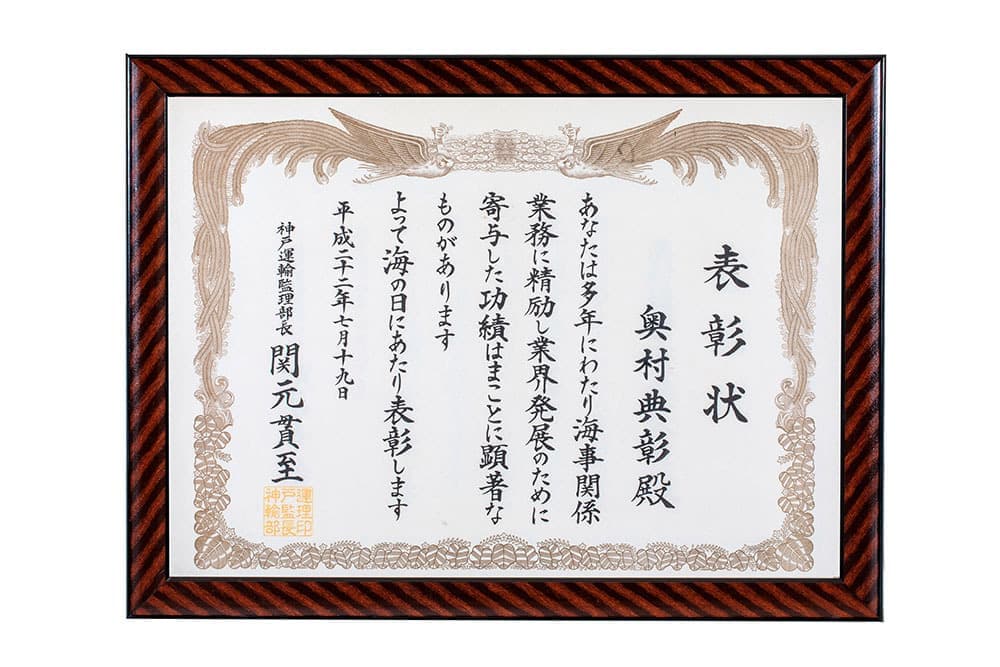 表彰状
奥村典彰殿
あなたは多年にわたり海事関係
業務に精励し業界発展のために
寄与した功績はまことに顕著な
ものがあります
よって海の日にあたり表彰します
平成二十二年七月十九日
神戸運輸監理部長 関元貫至
運理印
戸監長
神輸部